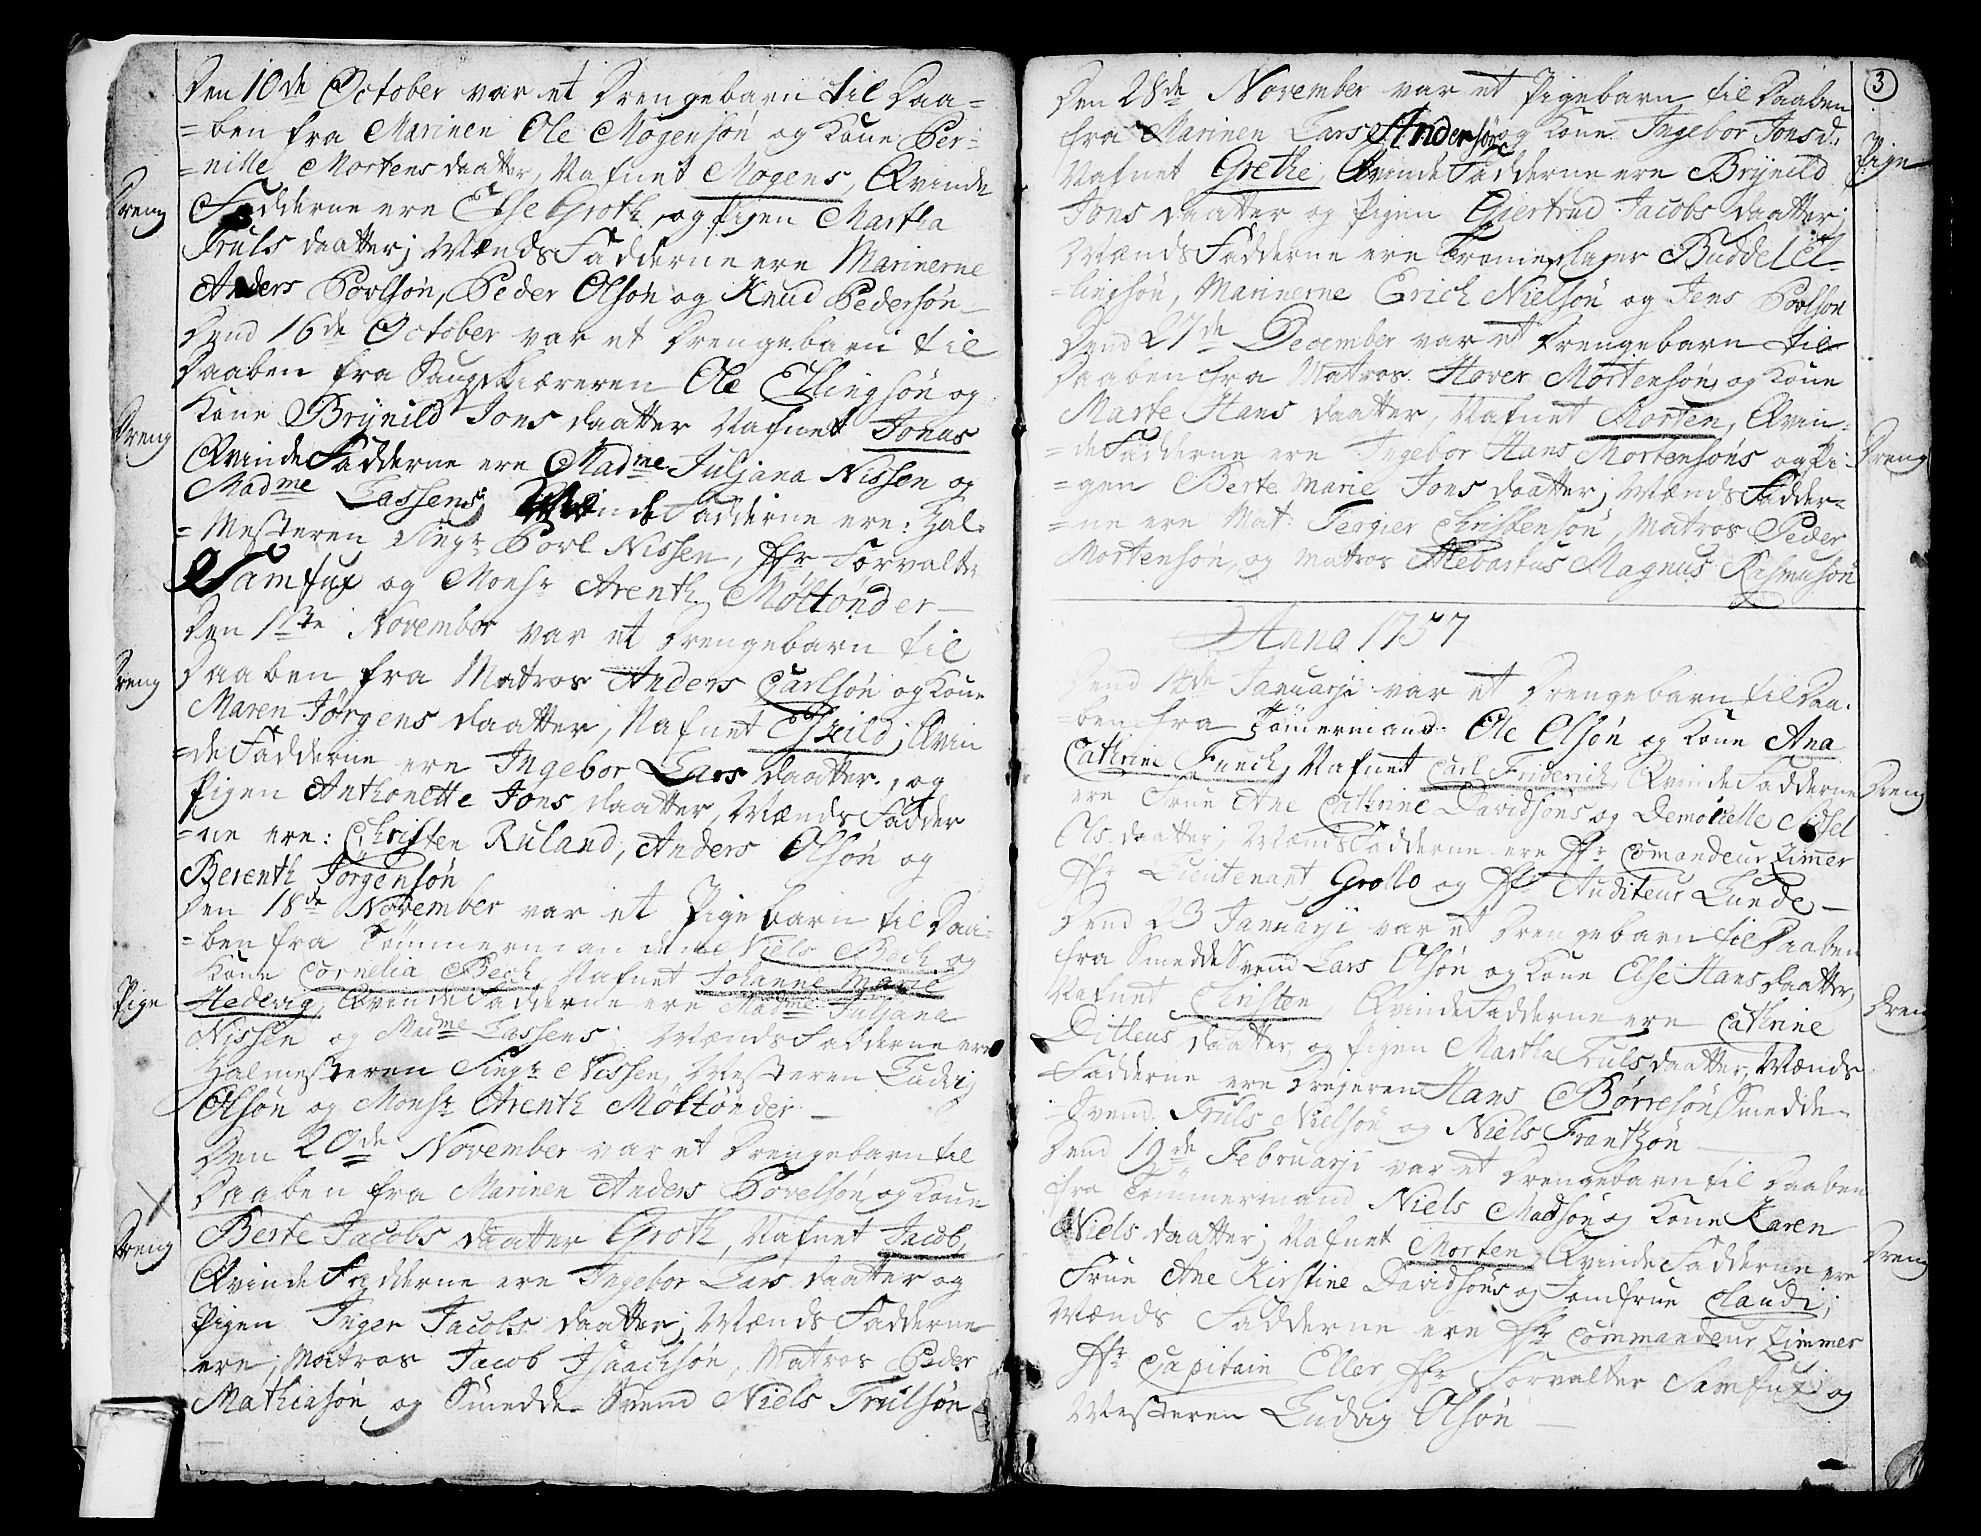 Den 10de October var et Drengebarn til Daa=
=ben fra Marinen Ole Mogensøn og Kone Per=
=nille Mortens daatter, Nafnet Mogens, Qvinde
Dreng
Fadderne ere Else Groth, og Pigen Martha
Truls daatter; MændsFadderne ere Marinerne
Anders Povlsøn, Peder Olsøn og Knud Pedersøn
Dend 16de October var et Drengebarn til
Daaben fra Saugskiæreren Ole Ellingsøn og
Kone Brÿnild Jons daatter Nafnet Jonas
Dreng
QvindeFadderne ere Madme Juljana Nissen og
Madme Lassens; MændsFadderne ere: Hal=
=Mesteren Singr Povl Nissen, Hr Forvalter
Samfux og Monsr Arenth Møltønder
Den 11te November var et Drengebarn til
Dreng
Daaben fra Matros Anders Carlsøn og Kone
Maren Jørgens daatter, Nafnet Eskild; Qvin
=deFadderne ere Ingebor Lars daatter, og
Pigen Anthonette Jons daatter, MændsFadder
=ne ere: Christen Ruland, Anders Olsøn og
Berenth Jørgensøn
Den 18de November var et Pigebarn til Daa=
=ben fra Tømmermanden Niels Bech og
Kone Cornelia Bech, Nafnet Johanne Marie
Pige
Hedevig, QvindeFadderne ere Madme Juljana
Nissen og Madme Lassens; MændsFadderne ere
Halmesteren Singr Nissen, Mesteren Ludvig
Olsøn og Monsr Arenth Møltønder
Den 20de November var et Drengebarn til
Daaben fra Marinen Anders Povelsøn og Kone
Dreng
Berte Jacobs daatter Groth, Nafnet Jacob,
QvindeFadderne ere Ingebor Lars daatter og
Pigen Inger Jacobs daatter; MændsFadderne
ere; Matros Jacob Isaachsøn, Matros Peder
Mathiasøn og Smedde Svend Niels Trulsøn
3
Den 28de November var et Pigebarn til Daaben
fra Marinen Lars Andersøn og Kone Ingebor Jonsd.
Pige
Nafnet Grethe, QvindeFadderne ere Brÿnild
Jons daatter og Pigen Giertrud Jacobs daatter;
MændsFadderne ere Tromeslager Budde El=
=lingsøn, Marinerne Erich Nielsøn og Jens Povlsøn
Dend 27de December var et Drengebarn til
Daaben fra Matros Hover Mortensøn og Kone
Marte Hans daatter, Nafnet Morten, Qvin=
Dreng
=deFadderne ere Ingebor Hans Mortensøns og Pi=
=gen Berte Marie Jons daatter; MændsFadder=
=ne ere Mat: Tergier Christensøn, Matros Peder
Mortensøn, og Matros Hebartus Magnus Rasmusøn
Anno 1757
Dend 14de Januarji var et Drengebarn til Daa=
=ben fra Tømermand Ole Olsøn og Kone Ana
Cathrine Funch, Nafnet Carl Friderich, QvindeFadderne
Dreng
ere Frue Ane Cathrine Davidsøns og Demoiselle Sidsel
Ols daatter; MændsFadderne ere Hr Comandeur Zimer
Hr Lieutenant Grollo og Hr Auditeur Lunde
Dend 23 Januarji var et Drengebarn til Daaben
fra SmeddeSvend Lars Olsøn og Kone Else Hans daatter,
Nafnet Christen, QvindeFadderne ere Cathrine
Dreng
Ditleus daatter, og Pigen Martha Truls daatter, Mænds
Fadderne ere Drejeren Hans Børresøn Smedde=
Svend Truls Nielsøn og Niels Frantzøn
Dend 19de Februarji var et Drengebarn til Daaben
fra Tømmermand Niels Madsøn og Kone Karen
Niels daatter; Nafnet Morten, QvindeFadderne ere
Dreng
Frue Ane Kirstine Davidsøns og Jomfrue Claudi;
Mænds Fadderne ere Hr Commandeur Zimmer
Hr Capitain Eller Hr Forvalter Samfux og
Mesteren Ludvig Olsøn